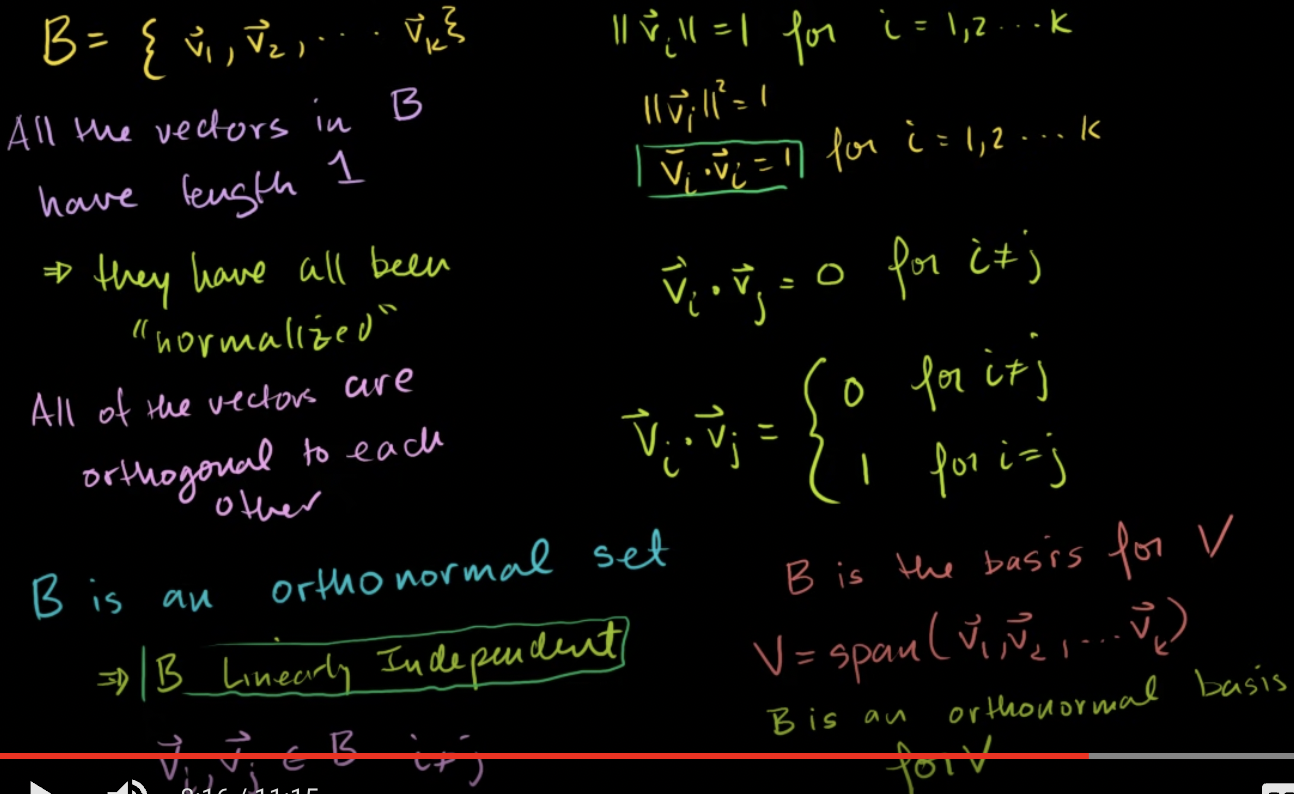 B = { v⃗₁, v⃗₂, ... v⃗ₖ}
All the vectors in B
have length 1
⇒ they have all been
"normalized"
All of the vectors are
orthogonal to each
other
B is an orthonormal set
⇒ B Linearly Independent
v⃗ᵢ, v⃗ⱼ ∈ B i ≠ j
||v⃗ᵢ|| = 1 for i = 1,2 ... k
||v⃗ᵢ||² = 1
v⃗ᵢ · v⃗ᵢ = 1 for i = 1,2 ... k
v⃗ᵢ · v⃗ⱼ = 0 for i ≠ j
v⃗ᵢ · v⃗ⱼ = { 0 for i ≠ j
1 for i = j
B is the basis for V
V = span(v⃗₁, v⃗₂, ... v⃗ₖ)
B is an orthonormal basis
for V